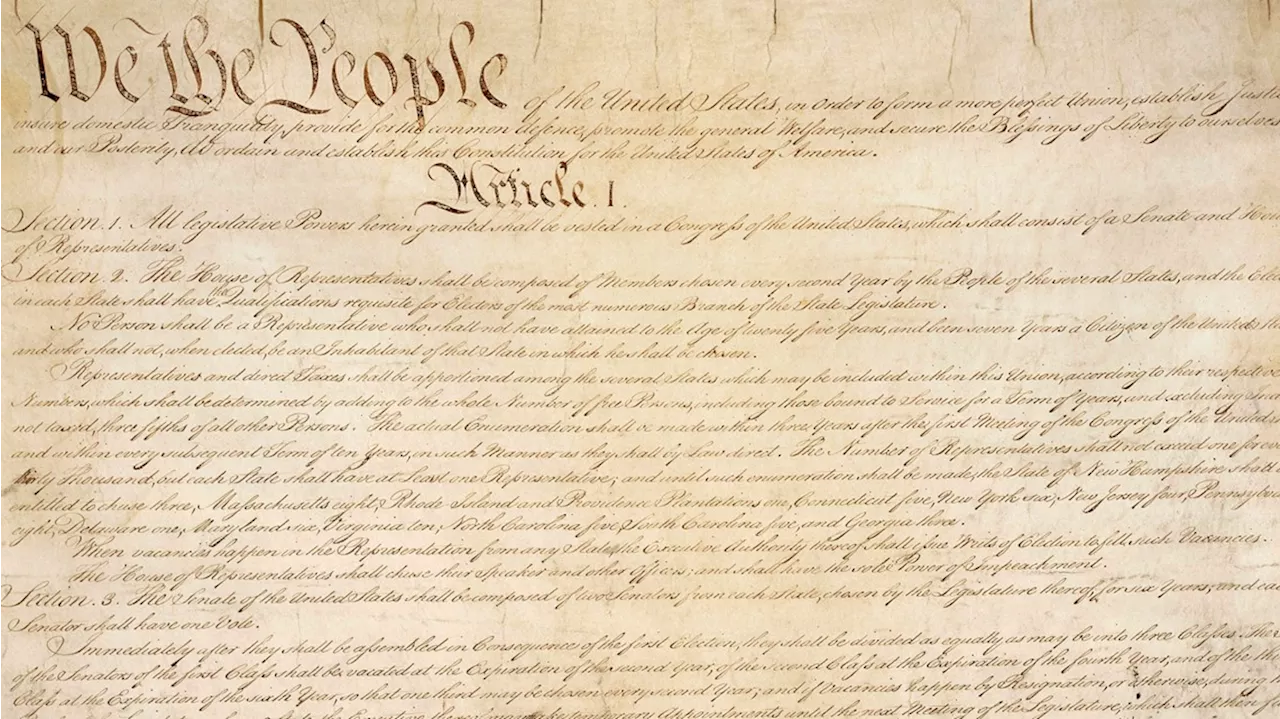 We the People of the United States, in Order to form a more perfect Union, establish Justi
insure domestic Tranquility, provide for the common defence, promote the general Welfare, and secure the Blessings of Liberty to ourselves
and our Posterity, do ordain and establish this Constitution for the United States of America.
Article. I.
Section. 1. All legislative Powers herein granted shall be vested in a Congress of the United States, which shall consist of a Senate and Hou
of Representatives.
Section. 2. The House of Representatives shall be composed of Members chosen every second Year by the People of the several States, and the Elec
in each State shall have the Qualifications requisite for Electors of the most numerous Branch of the State Legislature.
No Person shall be a Representative who shall not have attained to the Age of twenty five Years, and been seven Years a Citizen of the United St
and who shall not, when elected, be an Inhabitant of that State in which he shall be chosen.
Representatives and direct Taxes shall be apportioned among the several States which may be included within this Union, according to their respective
Numbers, which shall be determined by adding to the whole Number of free Persons, including those bound to Service for a Term of Years, and excluding Ind
not taxed, three fifths of all other Persons. The actual Enumeration shall be made within three Years after the first Meeting of the Congress of the United
and within every subsequent Term of ten Years, in such Manner as they shall by Law direct. The Number of Representatives shall not exceed one for every
thirty Thousand, but each State shall have at Least one Representative; and until such enumeration shall be made, the State of New Hampshire shall
entitled to chuse three, Massachusetts eight, Rhode Island and Providence Plantations one, Connecticut five, New York six, New Jersey four, Pennsylva
eight, Delaware one, Maryland six, Virginia ten, North Carolina five, South Carolina five, and Georgia three.
When vacancies happen in the Representation from any State, the Executive Authority thereof shall issue Writs of Election to fill such Vacancies.
The House of Representatives shall chuse their Speaker and other Officers; and shall have the sole Power of Impeachment.
Section. 3. The Senate of the United States shall be composed of two Senators from each State, chosen by the Legislature thereof, for six Years; and ea
Senator shall have one Vote.
Immediately after they shall be assembled in Consequence of the first Election, they shall be divided as equally as may be into three Classes. The
of the Senators of the first Class shall be vacated at the Expiration of the second Year, of the second Class at the Expiration of the fourth Year, and of the th
Class at the Expiration of the sixth Year, so that one third may be chosen every second Year; and if Vacancies happen by Resignation, or otherwise, during
State the Executive thereof may make temporary Appointments until the next Meeting of the Legislature, which shall then